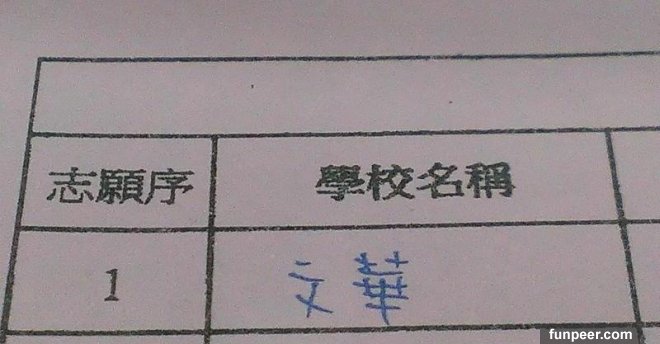 志願序 學校名稱
1 文華
funpeer.com